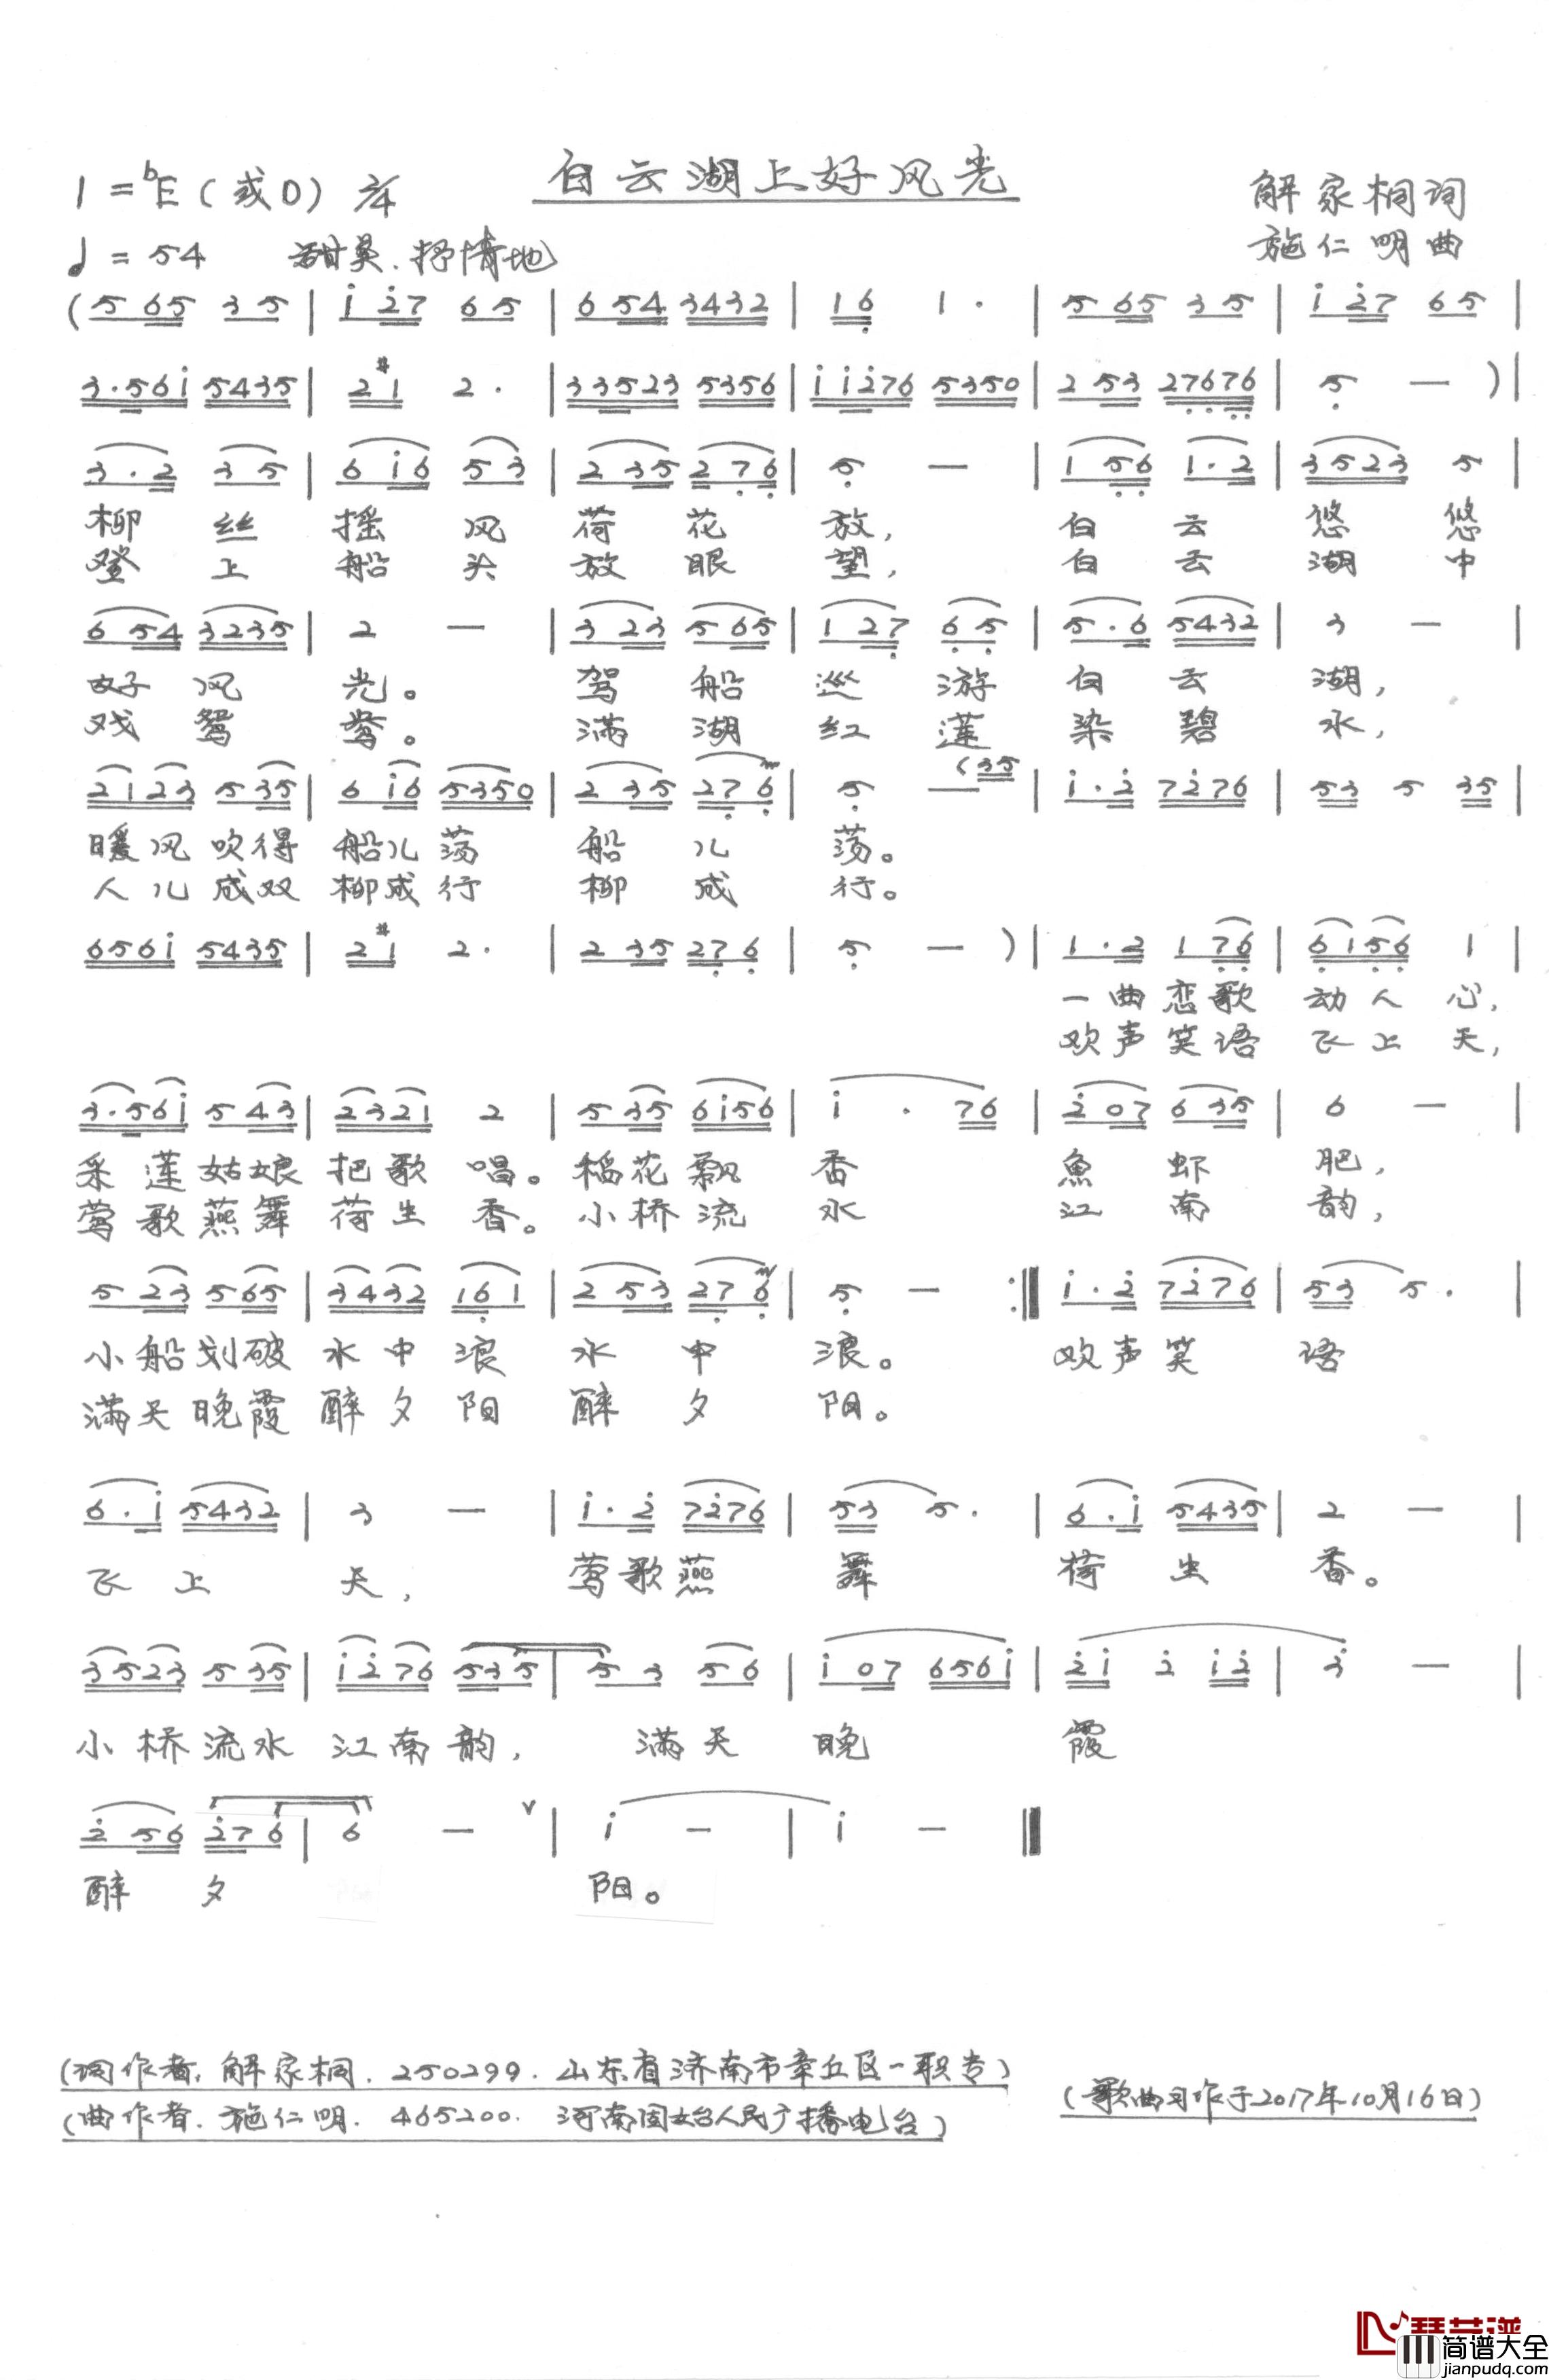 白云湖上好风光
1=bE(或D) 2/4
解家桐词
♩=54 甜美.抒情地
施仁明曲
(5 65 3 5 | i 27 6 5 | 6 54 3432 | 16 1 . | 5 65 3 5 | i 27 6 5 |
3.56i 5435 | 2#1 2 . | 33523 5356 | ii276 5350 | 2 53 27676 | 5 — ) |
3.2 3 5 | 6 i6 5 3 | 2 35 2 7 6 | 5 — | 1 56 1.2 | 3523 5 |
柳 丝 摇 风 荷 花 放, 白 云 悠 悠
登 上 船 头 放 眼 望, 白 云 湖 中
6 54 3235 | 2 — | 3 23 5 65 | 1 27 6 5 | 5.6 5432 | 3 — |
好 风 光。 驾 船 巡 游 白 云 湖,
戏 鸳 鸯。 满 湖 红 莲 染 碧 水,
2123 5 35 | 6 i6 5350 | 2 35 27 6 | 5 — (35 | i.2 7276 | 53 5 35 |
暖风吹得 船儿荡 船 儿 荡。
人儿成双 柳成行 柳 成 行。
656i 5435 | 2#1 2 . | 2 35 27 6 | 5 — ) | 1.2 1 76 | 6156 1 |
一曲恋歌 动人 心,
欢声笑语 飞上 天,
3.56i 5 43 | 2321 2 | 5 35 6i56 | i . 76 | 2 07 6 35 | 6 — |
采莲姑娘 把歌 唱。 稻花飘 香 魚 虾 肥,
莺歌燕舞 荷生 香。 小桥流 水 江 南 韵,
5 23 5 65 | 3432 16 1 | 2 53 27 6 | 5 — :‖ i.2 7276 | 53 5 . |
小船划破 水中浪 水 中 浪。 欢声笑 语
满天晚霞 醉夕阳 醉 夕 阳。
6.i 5432 | 3 — | i.2 7276 | 53 5 . | 6.i 5435 | 2 — |
飞 上 天, 莺歌燕 舞 荷 生 香。
3523 5 35 | i276 535 | 5 3 5 6 | i 07 656i | 2i 2 i2 | 3 — |
小桥流水 江南韵, 满天 晚 霞
2 56 276 | 6 — v | i — | i — ‖
醉 夕 阳。
(词作者:解家桐.250299.山东省济南市章丘区一职专)
(曲作者.施仁明.465200.河南固始人民广播电台)
(歌曲习作于2017年10月16日)
琴艺谱
简谱大全
jianpudq.com